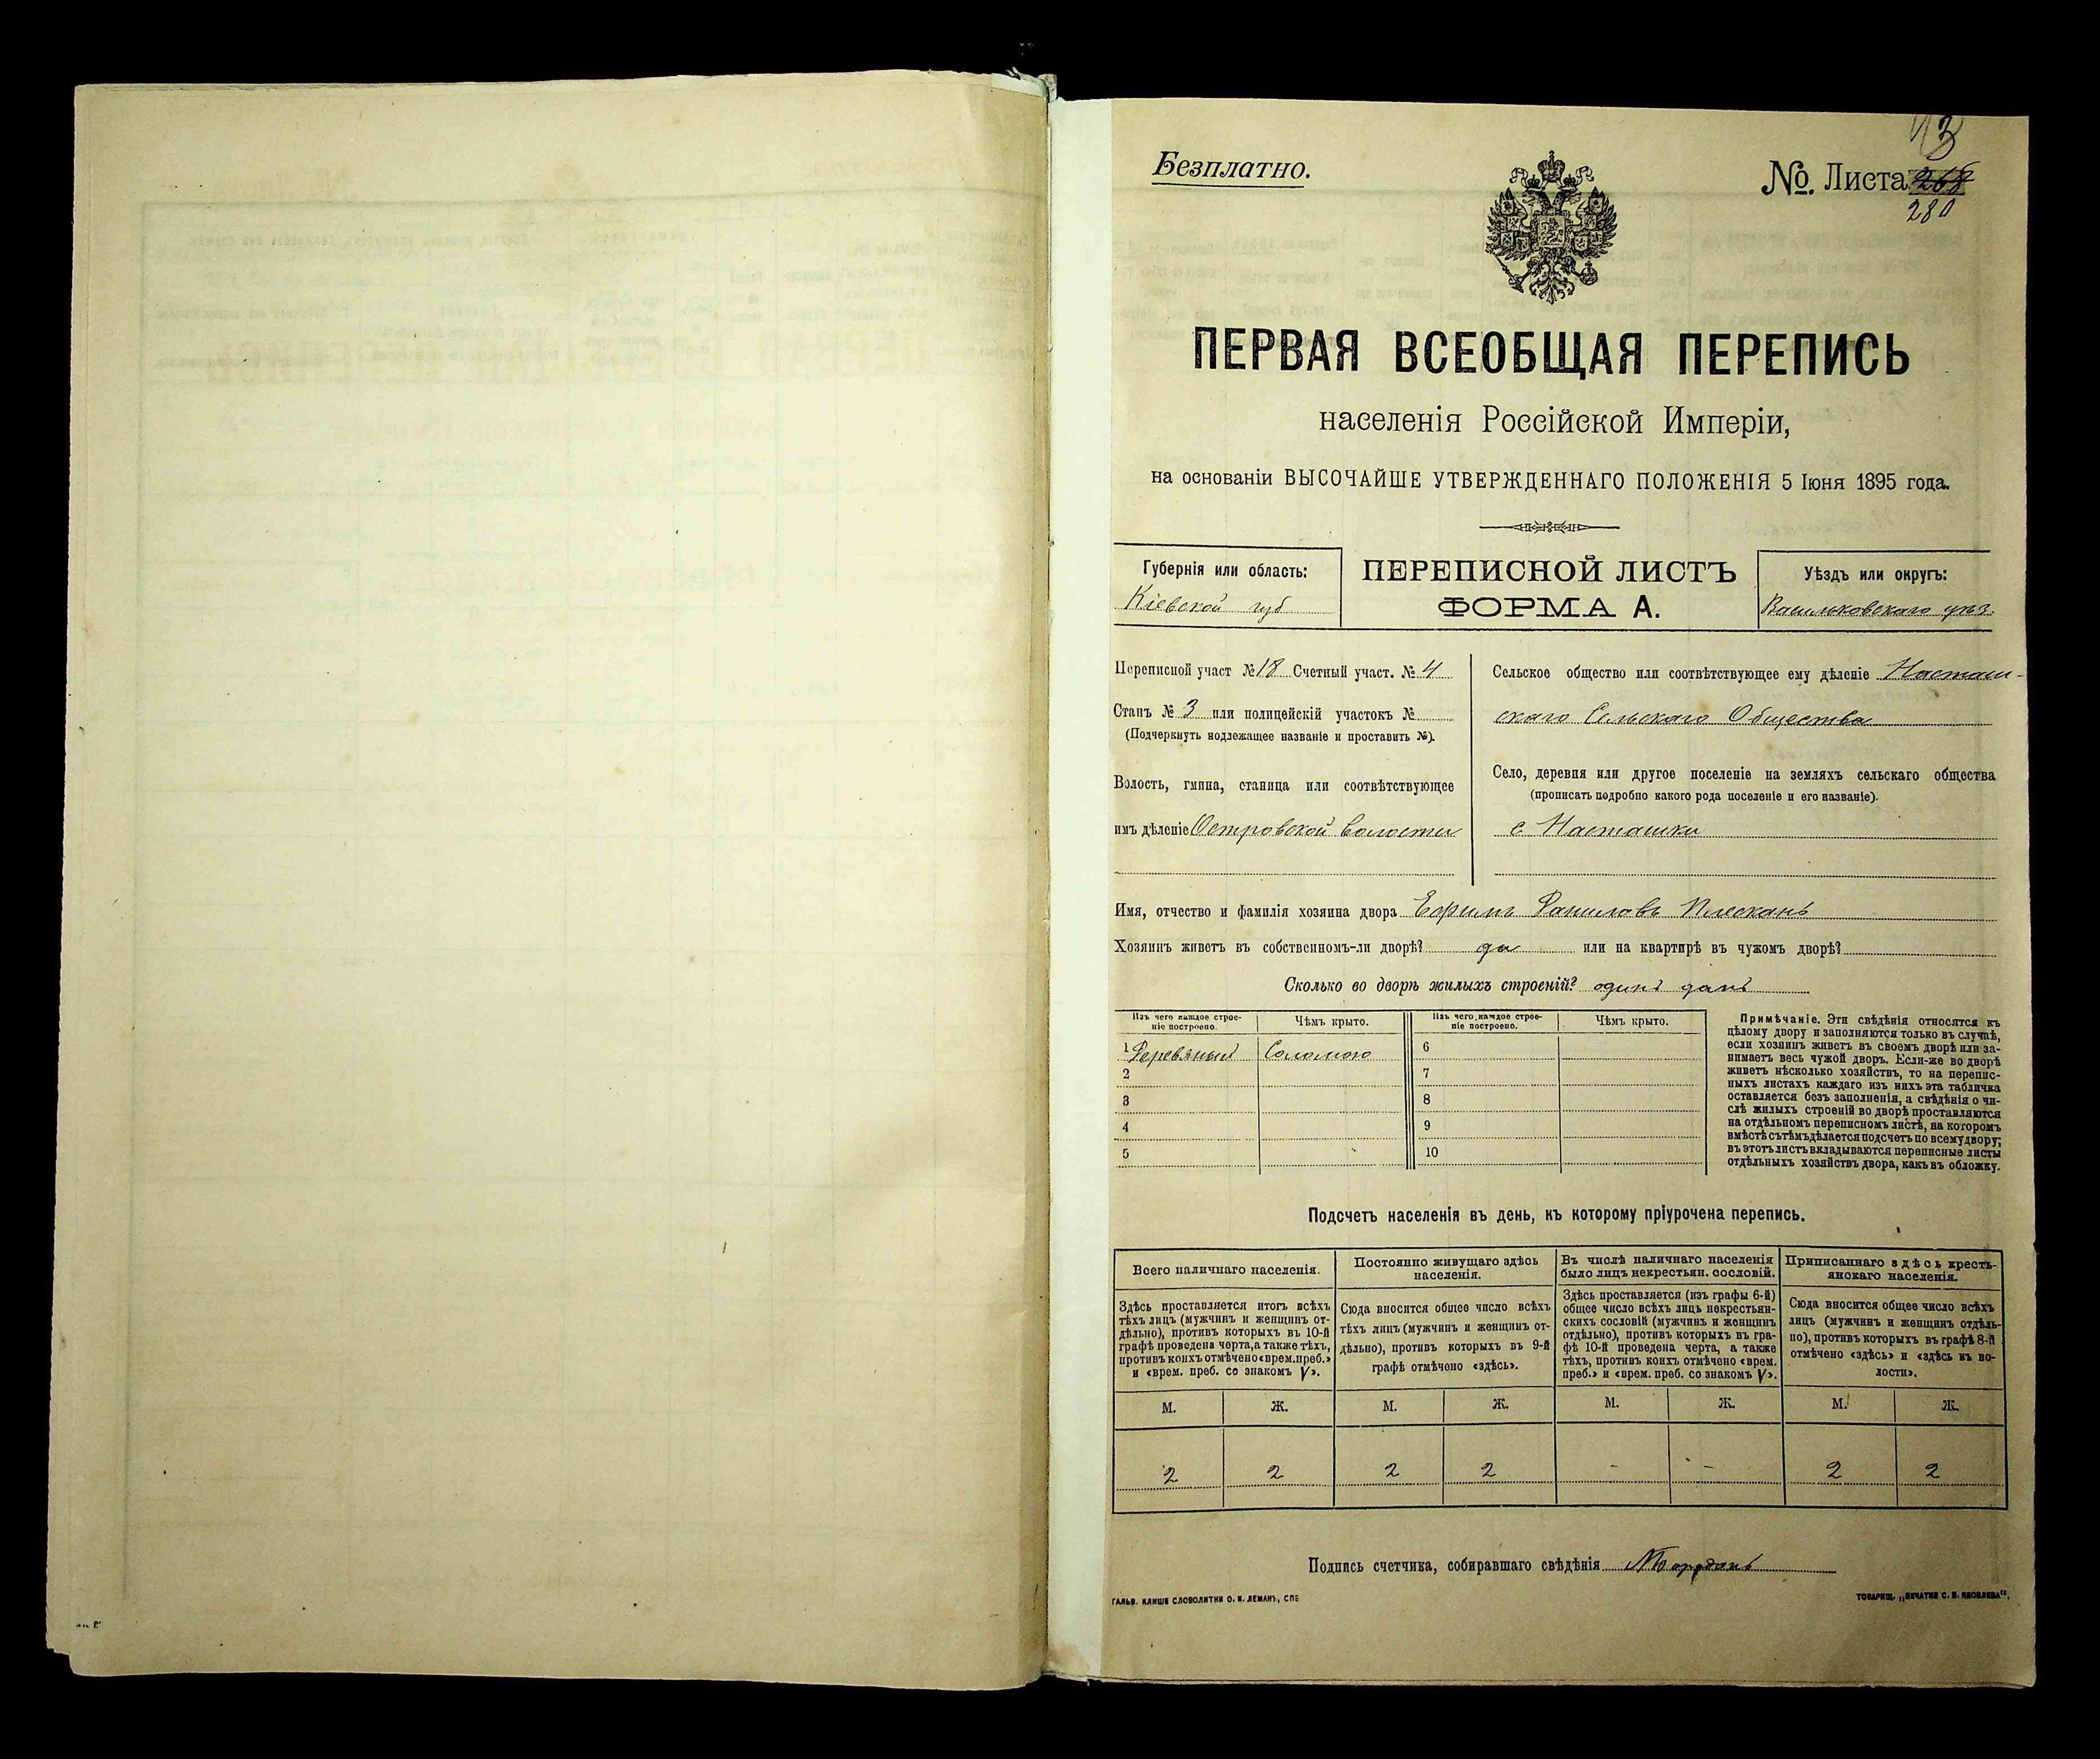 Безплатно.
№. Листа 268
280
ПЕРВАЯ ВСЕОБЩАЯ ПЕРЕПИСЬ
населенія Россійской Имперіи,
на основаніи ВЫСОЧАЙШЕ УТВЕРЖДЕННАГО ПОЛОЖЕНІЯ 5 Іюня 1895 года.
Губернія или область:
Кіевской губ
ПЕРЕПИСНОЙ ЛИСТЪ
ФОРМА А.
Уѣздъ или округъ:
Васильковскаго уѣз.
Переписной участ № 18 Счетный участ. № 4
Станъ № 3 или полицейскій участокъ №
(Подчеркнуть подлежащее названіе и проставить №).
Волость, гмина, станица или соотвѣтствующее
имъ дѣленіе Островской волости
Сельское общество или соотвѣтствующее ему дѣленіе Насташ-
скаго Сельскаго Общества
Село, деревня или другое поселеніе на земляхъ сельскаго общества
(прописать подробно какого рода поселеніе и его названіе).
с Насташки
Имя, отчество и фамилія хозяина двора Ефимъ Даниловъ Плескань
Хозяинъ живетъ въ собственномъ-ли дворѣ? да или на квартирѣ въ чужомъ дворѣ?
Сколько во дворѣ жилыхъ строеній? одинъ домъ
Изъ чего каждое строе-
ніе построено.
Чѣмъ крыто.
Изъ чего каждое строе-
ніе построено.
Чѣмъ крыто.
1 Деревяный Соломою 6
2 7
3 8
4 9
5 10
Примѣчаніе. Эти свѣдѣнія относятся къ
цѣлому двору и заполняются только въ случаѣ,
если хозяинъ живетъ въ своемъ дворѣ или за-
нимаетъ весь чужой дворъ. Если-же во дворѣ
живетъ нѣсколько хозяйствъ, то на перепис-
ныхъ листахъ каждаго изъ нихъ эта табличка
оставляется безъ заполненія, а свѣдѣнія о чи-
слѣ жилыхъ строеній во дворѣ проставляются
на отдѣльномъ переписномъ листѣ, на которомъ
вмѣстѣ съ тѣмъ дѣлается подсчетъ по всему двору;
въ этотъ листъ вкладываются переписные листы
отдѣльныхъ хозяйствъ двора, какъ въ обложку.
Подсчетъ населенія въ день, къ которому пріурочена перепись.
Всего наличнаго населенія.
Здѣсь проставляется итогъ всѣхъ
тѣхъ лицъ (мужчинъ и женщинъ от-
дѣльно), противъ которыхъ въ 10-й
графѣ проведена черта, а также тѣхъ,
противъ коихъ отмѣчено «врем. преб.»
и «врем. преб. со знакомъ V».
Постоянно живущаго здѣсь
населенія.
Сюда вносится общее число всѣхъ
тѣхъ лицъ (мужчинъ и женщинъ от-
дѣльно), противъ которыхъ въ 9-й
графѣ отмѣчено «здѣсь».
Въ числѣ наличнаго населенія
было лицъ некрестьян. сословій.
Здѣсь проставляется (изъ графы 6-й)
общее число всѣхъ лицъ некрестьян-
скихъ сословій (мужчинъ и женщинъ
отдѣльно), противъ которыхъ въ гра-
фѣ 10-й проведена черта, а также
тѣхъ, противъ коихъ отмѣчено «врем.
преб.» и «врем. преб. со знакомъ V».
Приписаннаго здѣсь кресть-
янскаго населенія.
Сюда вносится общее число всѣхъ
лицъ (мужчинъ и женщинъ отдѣль-
но), противъ которыхъ въ графѣ 8-й
отмѣчено «здѣсь» и «здѣсь къ во-
лости».
М. Ж. М. Ж. М. Ж. М. Ж.
2 2 2 2 - - 2 2
Подпись счетчика, собиравшаго свѣдѣнія
ГАЛЬВ. КЛИШЕ СЛОВОЛИТНИ О. И. ЛЕМАНЪ, СПБ
ТОВАРИЩ. „ПЕЧАТНЯ С. П. ЯКОВЛЕВА“,